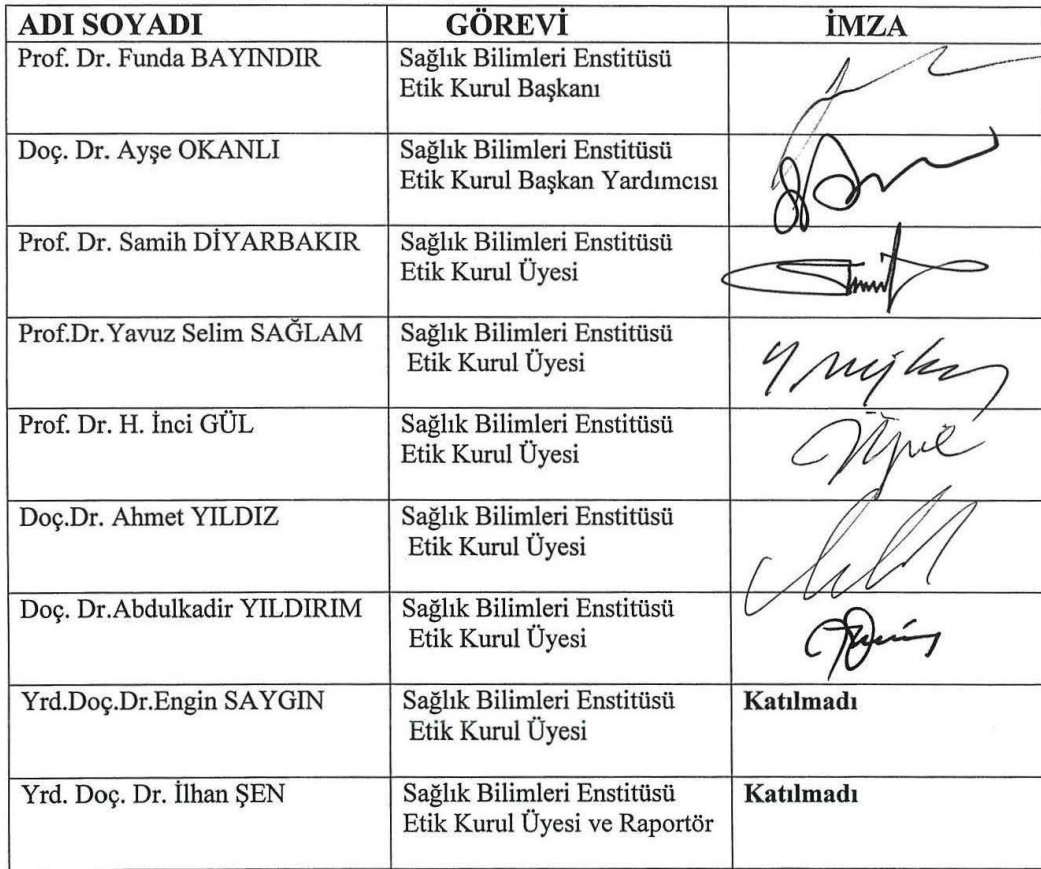 ADI SOYADI GÖREVİ İMZA
Prof. Dr. Funda BAYINDIR Sağlık Bilimleri Enstitüsü
Etik Kurul Başkanı
Doç. Dr. Ayşe OKANLI Sağlık Bilimleri Enstitüsü
Etik Kurul Başkan Yardımcısı
Prof. Dr. Samih DİYARBAKIR Sağlık Bilimleri Enstitüsü
Etik Kurul Üyesi
Prof.Dr.Yavuz Selim SAĞLAM Sağlık Bilimleri Enstitüsü
Etik Kurul Üyesi
Prof. Dr. H. İnci GÜL Sağlık Bilimleri Enstitüsü
Etik Kurul Üyesi
Doç.Dr. Ahmet YILDIZ Sağlık Bilimleri Enstitüsü
Etik Kurul Üyesi
Doç. Dr.Abdulkadir YILDIRIM Sağlık Bilimleri Enstitüsü
Etik Kurul Üyesi
Yrd.Doç.Dr.Engin SAYGIN Sağlık Bilimleri Enstitüsü Katılmadı
Etik Kurul Üyesi
Yrd. Doç. Dr. İlhan ŞEN Sağlık Bilimleri Enstitüsü Katılmadı
Etik Kurul Üyesi ve Raportör